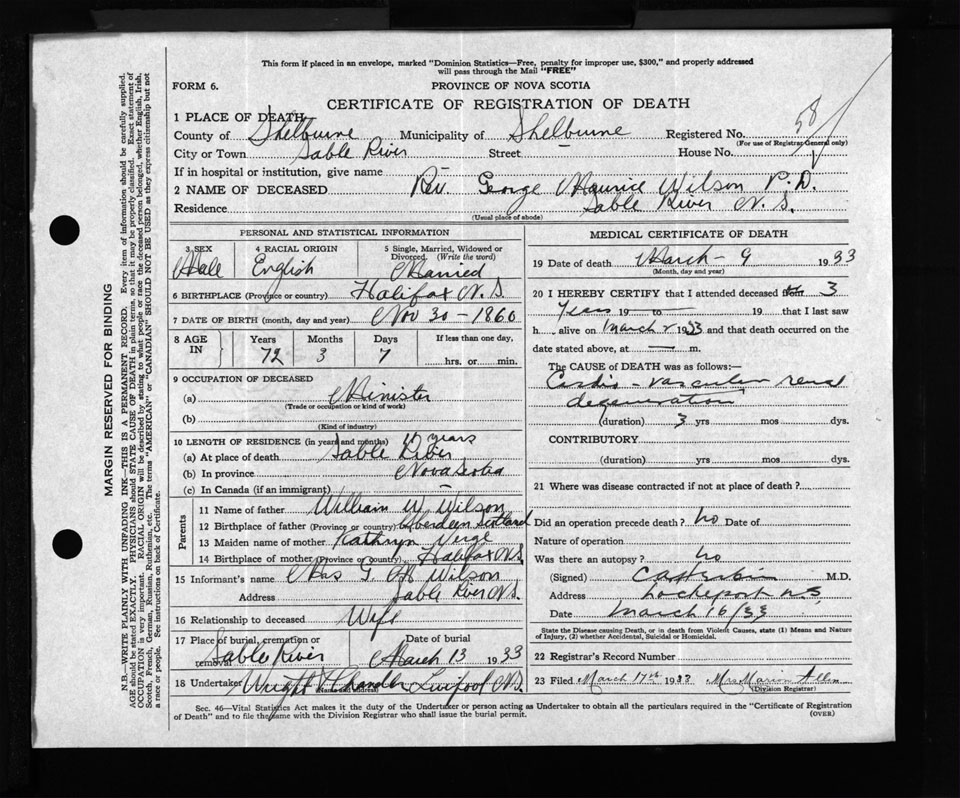 This form if placed in an envelope, marked "Dominion Statistics—Free, penalty for improper use, $300," and properly addressed
will pass through the Mail "FREE"
FORM 6.
PROVINCE OF NOVA SCOTIA
CERTIFICATE OF REGISTRATION OF DEATH
1 PLACE OF DEATH
County of Shelburne Municipality of Shelburne Registered No. 58
(For use of Registrar-General only)
City or Town Sable River Street — House No.
If in hospital or institution, give name —
2 NAME OF DECEASED Rev. George Maurice Wilson P.D.
Residence Sable River N.S.
(Usual place of abode)
PERSONAL AND STATISTICAL INFORMATION
3 SEX 4 RACIAL ORIGIN 5 Single, Married, Widowed or
Divorced. (Write the word)
Male English Married
6 BIRTHPLACE (Province or country) Halifax N.S.
7 DATE OF BIRTH (month, day and year) Nov 30 - 1860
8 AGE IN Years Months Days If less than one day,
72 3 7 hrs. or min.
9 OCCUPATION OF DECEASED
(a) Minister
(Trade or occupation or kind of work)
(b)
(Kind of industry)
10 LENGTH OF RESIDENCE (in years and months) years
(a) At place of death Sable River
(b) In province Nova Scotia
(c) In Canada (if an immigrant) —
Parents
11 Name of father William W. Wilson
12 Birthplace of father (Province or country) Aberdeen Scotland
13 Maiden name of mother Kathryn Verge
14 Birthplace of mother (Province or country) Halifax N.S.
15 Informant's name Mrs G. M Wilson
Address Sable River N.S.
16 Relationship to deceased Wife
17 Place of burial, cremation or Date of burial
removal Sable River March 13 1933
18 Undertaker Wright & Chandler Liverpool N.S.
(Name and address)
MEDICAL CERTIFICATE OF DEATH
19 Date of death March - 9 1933
(Month, day and year)
20 I HEREBY CERTIFY that I attended deceased from 3
years 19 to 19 that I last saw
h alive on March 1933 and that death occurred on
date stated above, at — m.
The CAUSE of DEATH was as follows:—
Cardio - vascular renal
degeneration
(duration) 3 yrs mos dys.
CONTRIBUTORY
(duration) yrs mos dys.
21 Where was disease contracted if not at place of death?
Did an operation precede death? no Date of
Nature of operation
Was there an autopsy? no
(Signed) M.D.
Address Lockeport N.S.
Date March 16/33
State the Disease causing Death, or in death from Violent Causes, state (1) Means and Nature
of Injury, (2) whether Accidental, Suicidal or Homicidal.
22 Registrar's Record Number
23 Filed March 17th 1933 Mrs Marion Allen
(Division Registrar)
Sec. 46—Vital Statistics Act makes it the duty of the Undertaker or person acting as Undertaker to obtain all the particulars required in the "Certificate of Registration
of Death" and to file the same with the Division Registrar who shall issue the burial permit. (OVER)
MARGIN RESERVED FOR BINDING
N.B.—WRITE PLAINLY WITH UNFADING INK—THIS IS A PERMANENT RECORD. Every item of information should be carefully supplied.
AGE should be stated EXACTLY. PHYSICIANS should STATE CAUSE OF DEATH in plain terms, so that it may be properly classified. Exact statement of
OCCUPATION is very important. RACIAL ORIGIN will be described by stating to what people or race the deceased person belonged, whether English, Irish,
Scotch, French, German, Russian, Ruthenian, etc. The terms "AMERICAN" or "CANADIAN" SHOULD NOT BE USED as they express citizenship but not
a race or people. See instructions on back of Certificate.